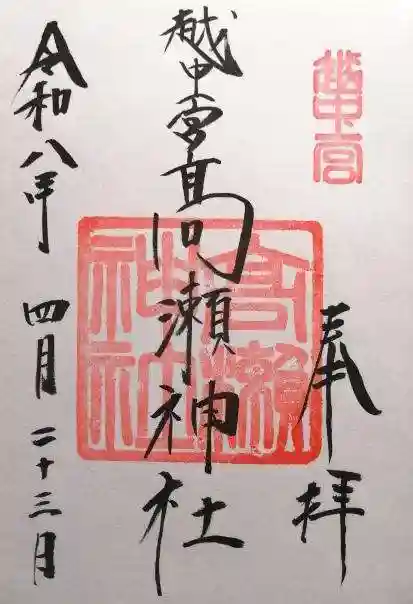 越中宮
奉拝
越中宮髙瀬神社
高瀬神社
令和八年 四月 二十三日